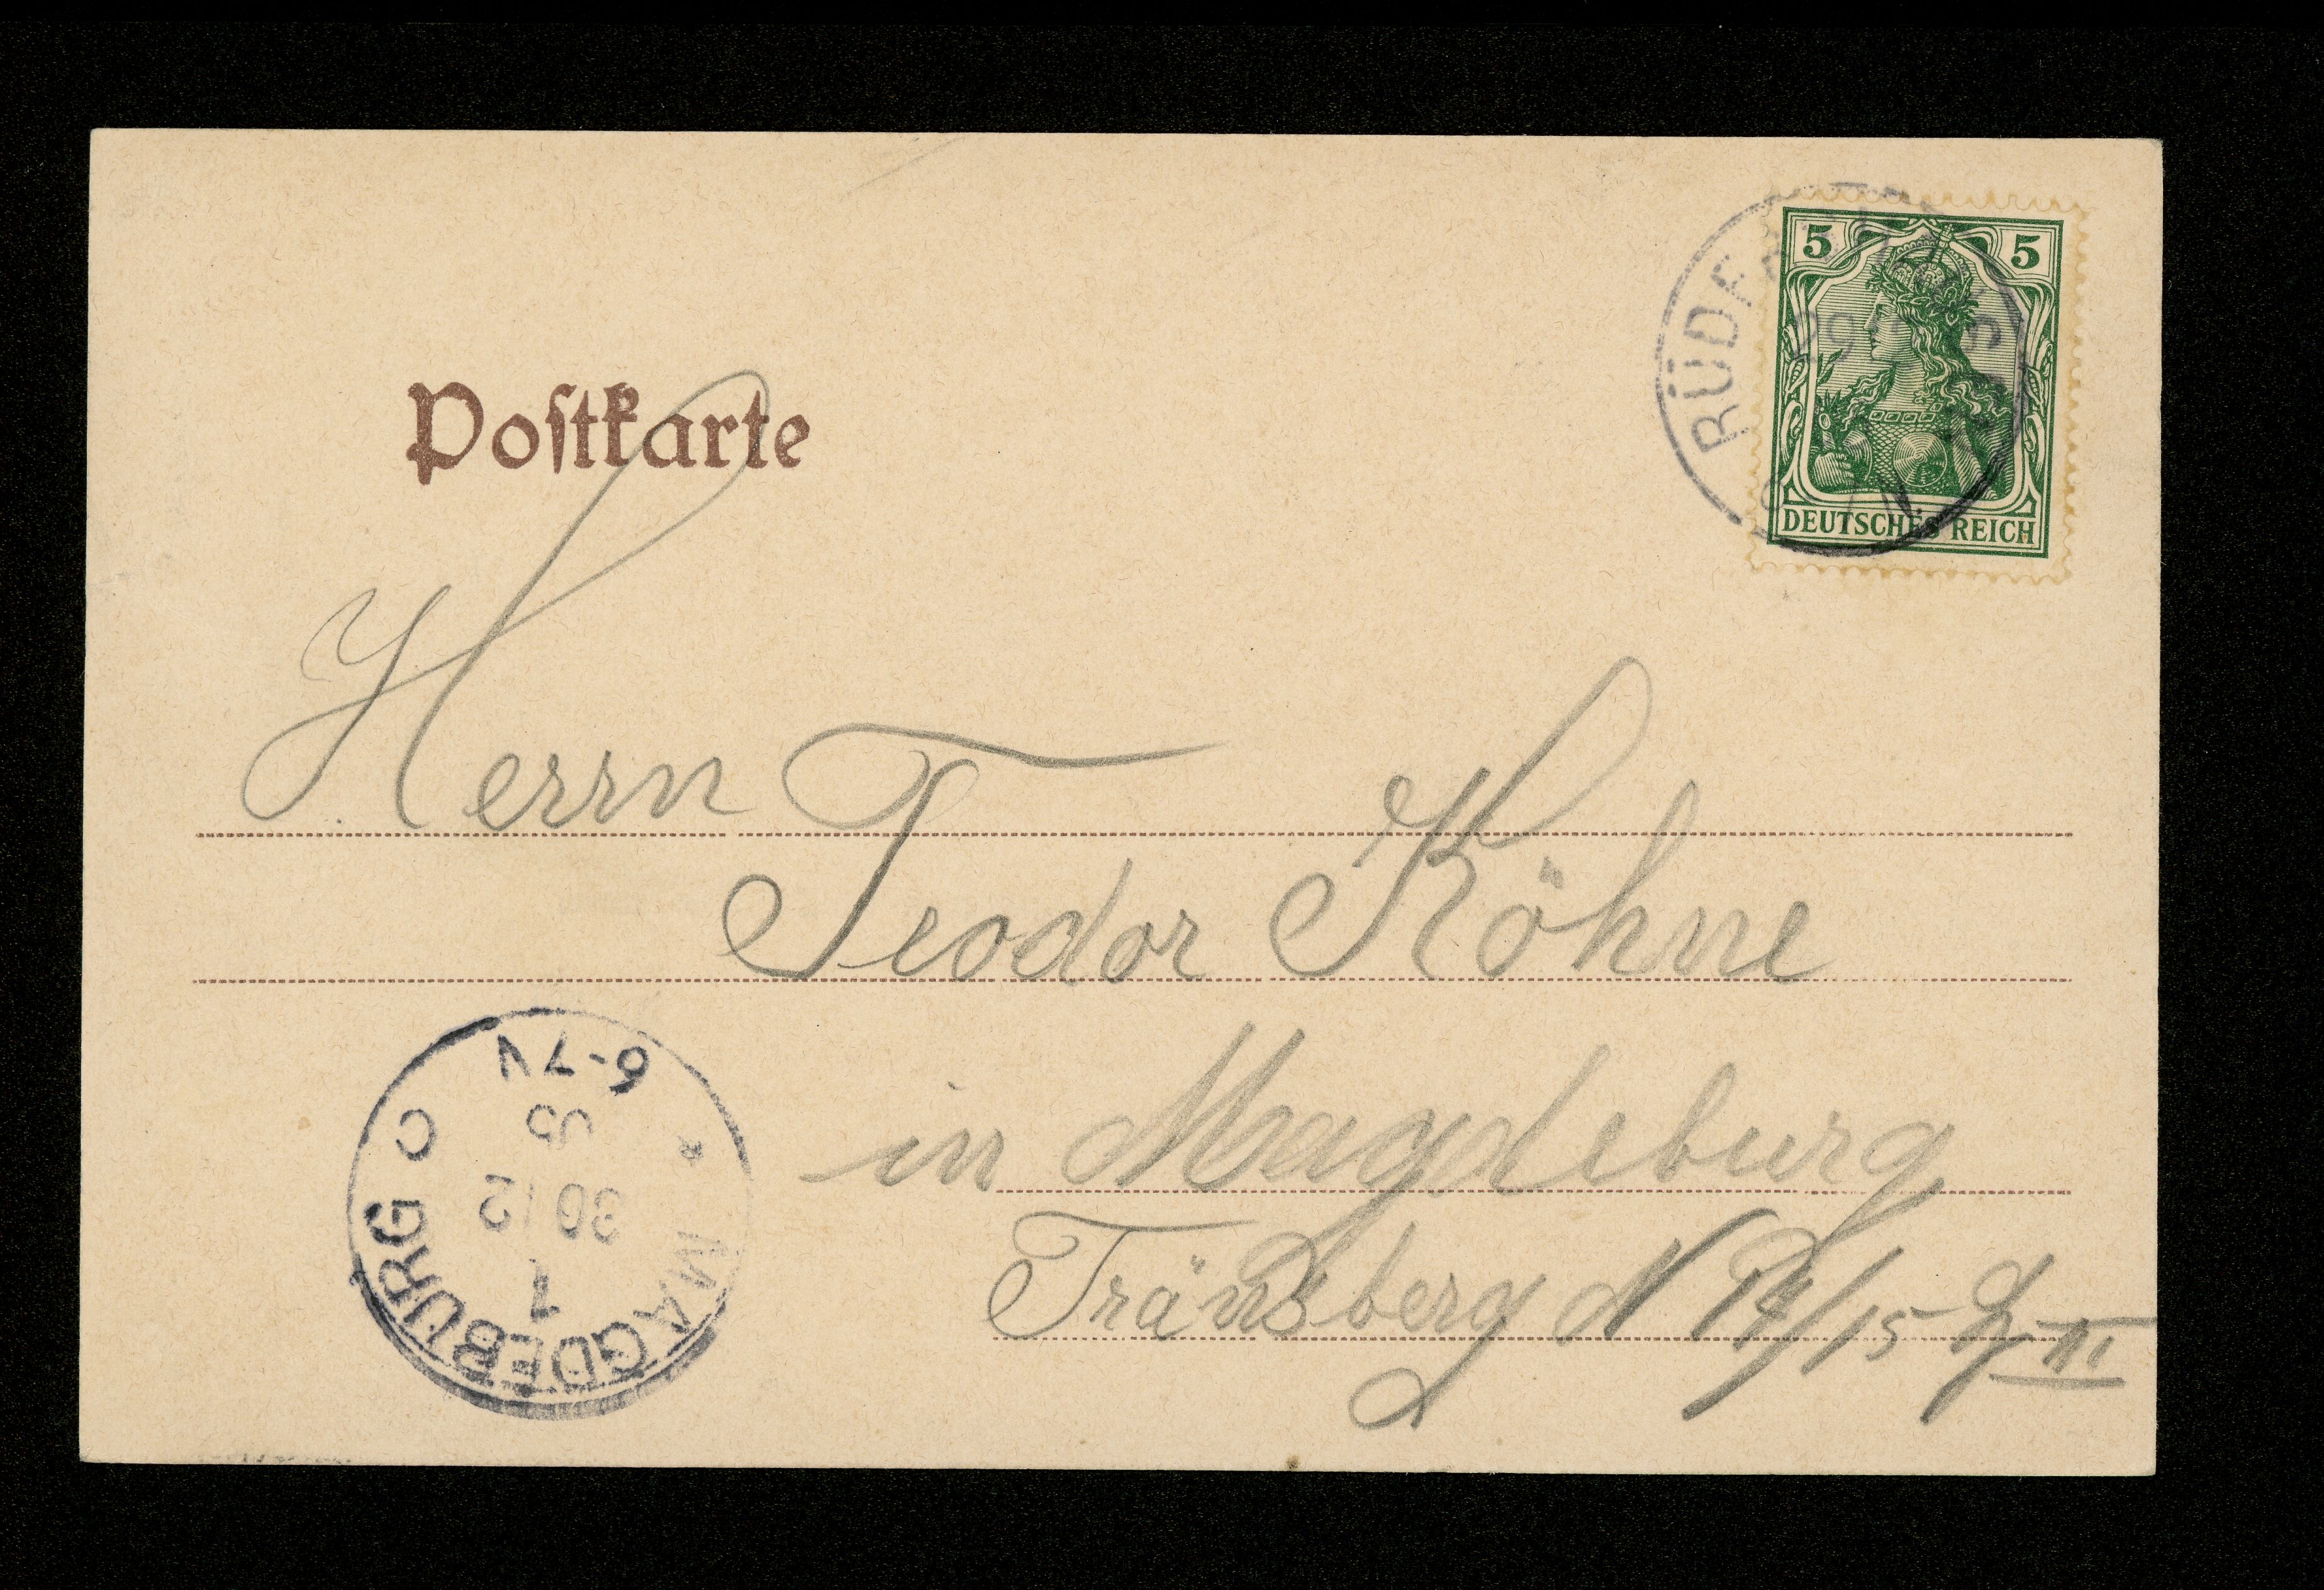 5 5
DEUTSCHES REICH
RÜDE
Postkarte
Herrn
Teodor Köhne
in Magdeburg
Tränsberg N 14/15 III
MAGDEBURG C
1
30 12
05
6-7N